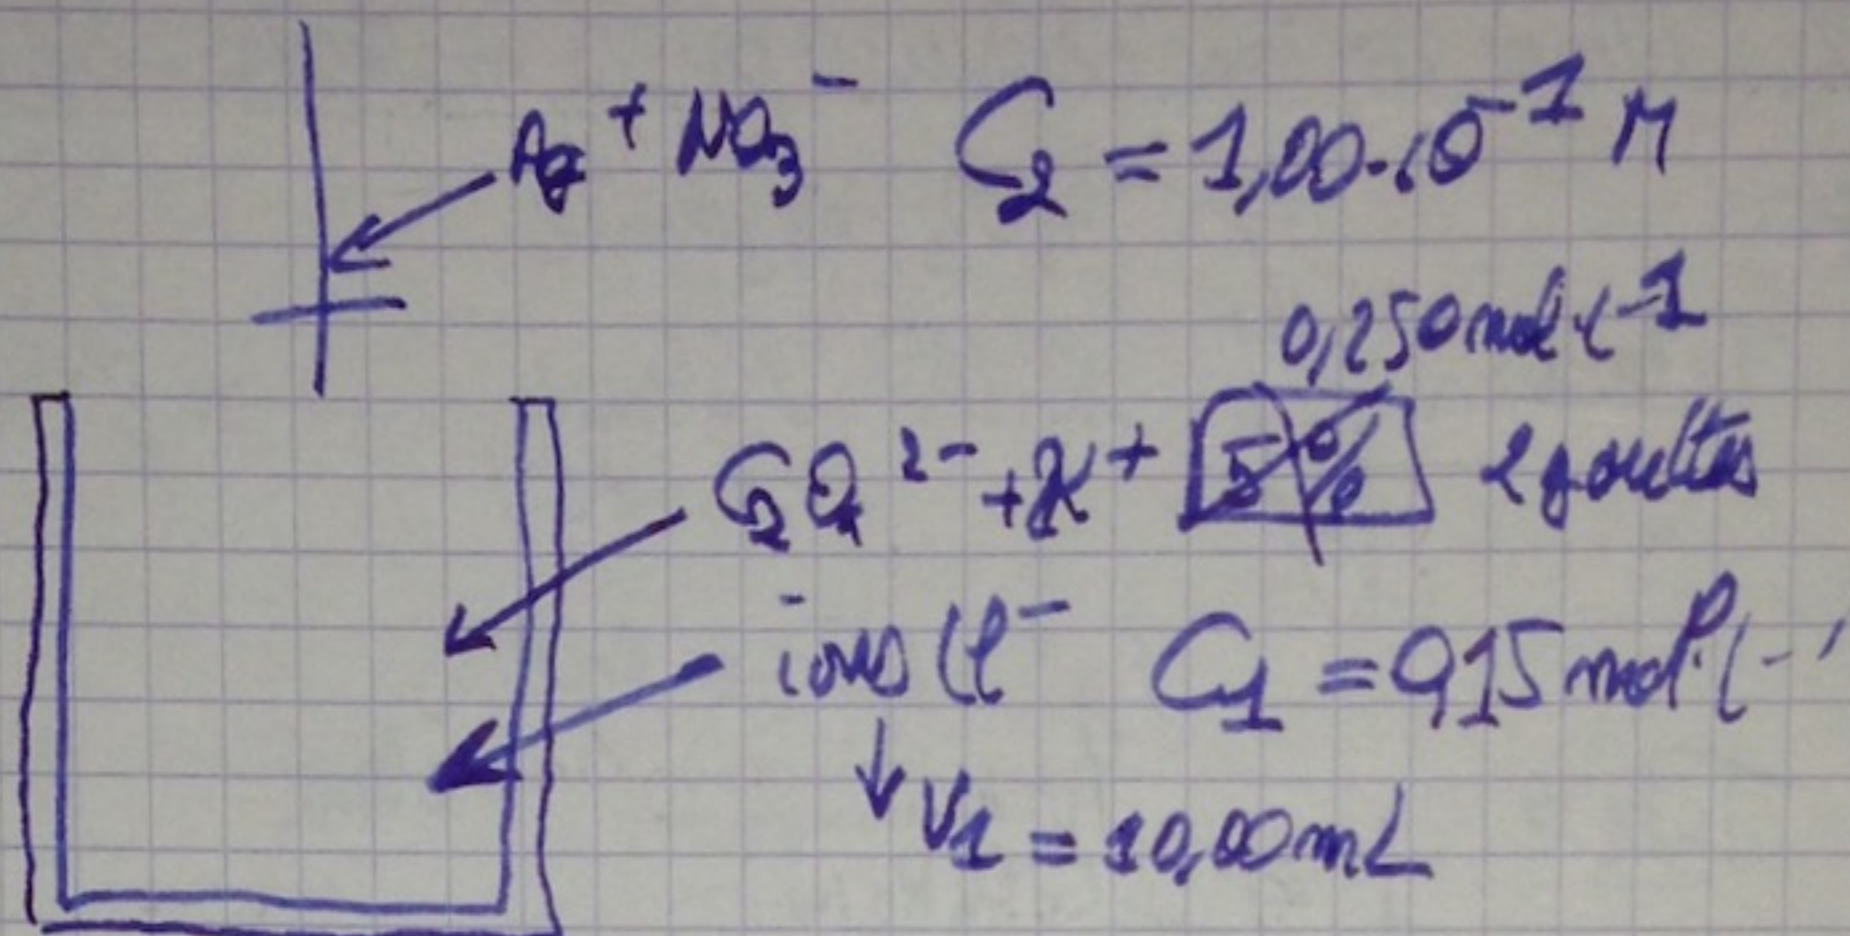 Ag⁺ NO₃⁻ C₂ = 1,00.10⁻¹ M
0,250 mol.l⁻¹
C₂O₄²⁻ + K⁺ 5% 2 gouttes
ions Cl⁻ C₁ = 0,15 mol.l⁻¹
V₁ = 10,00 mL